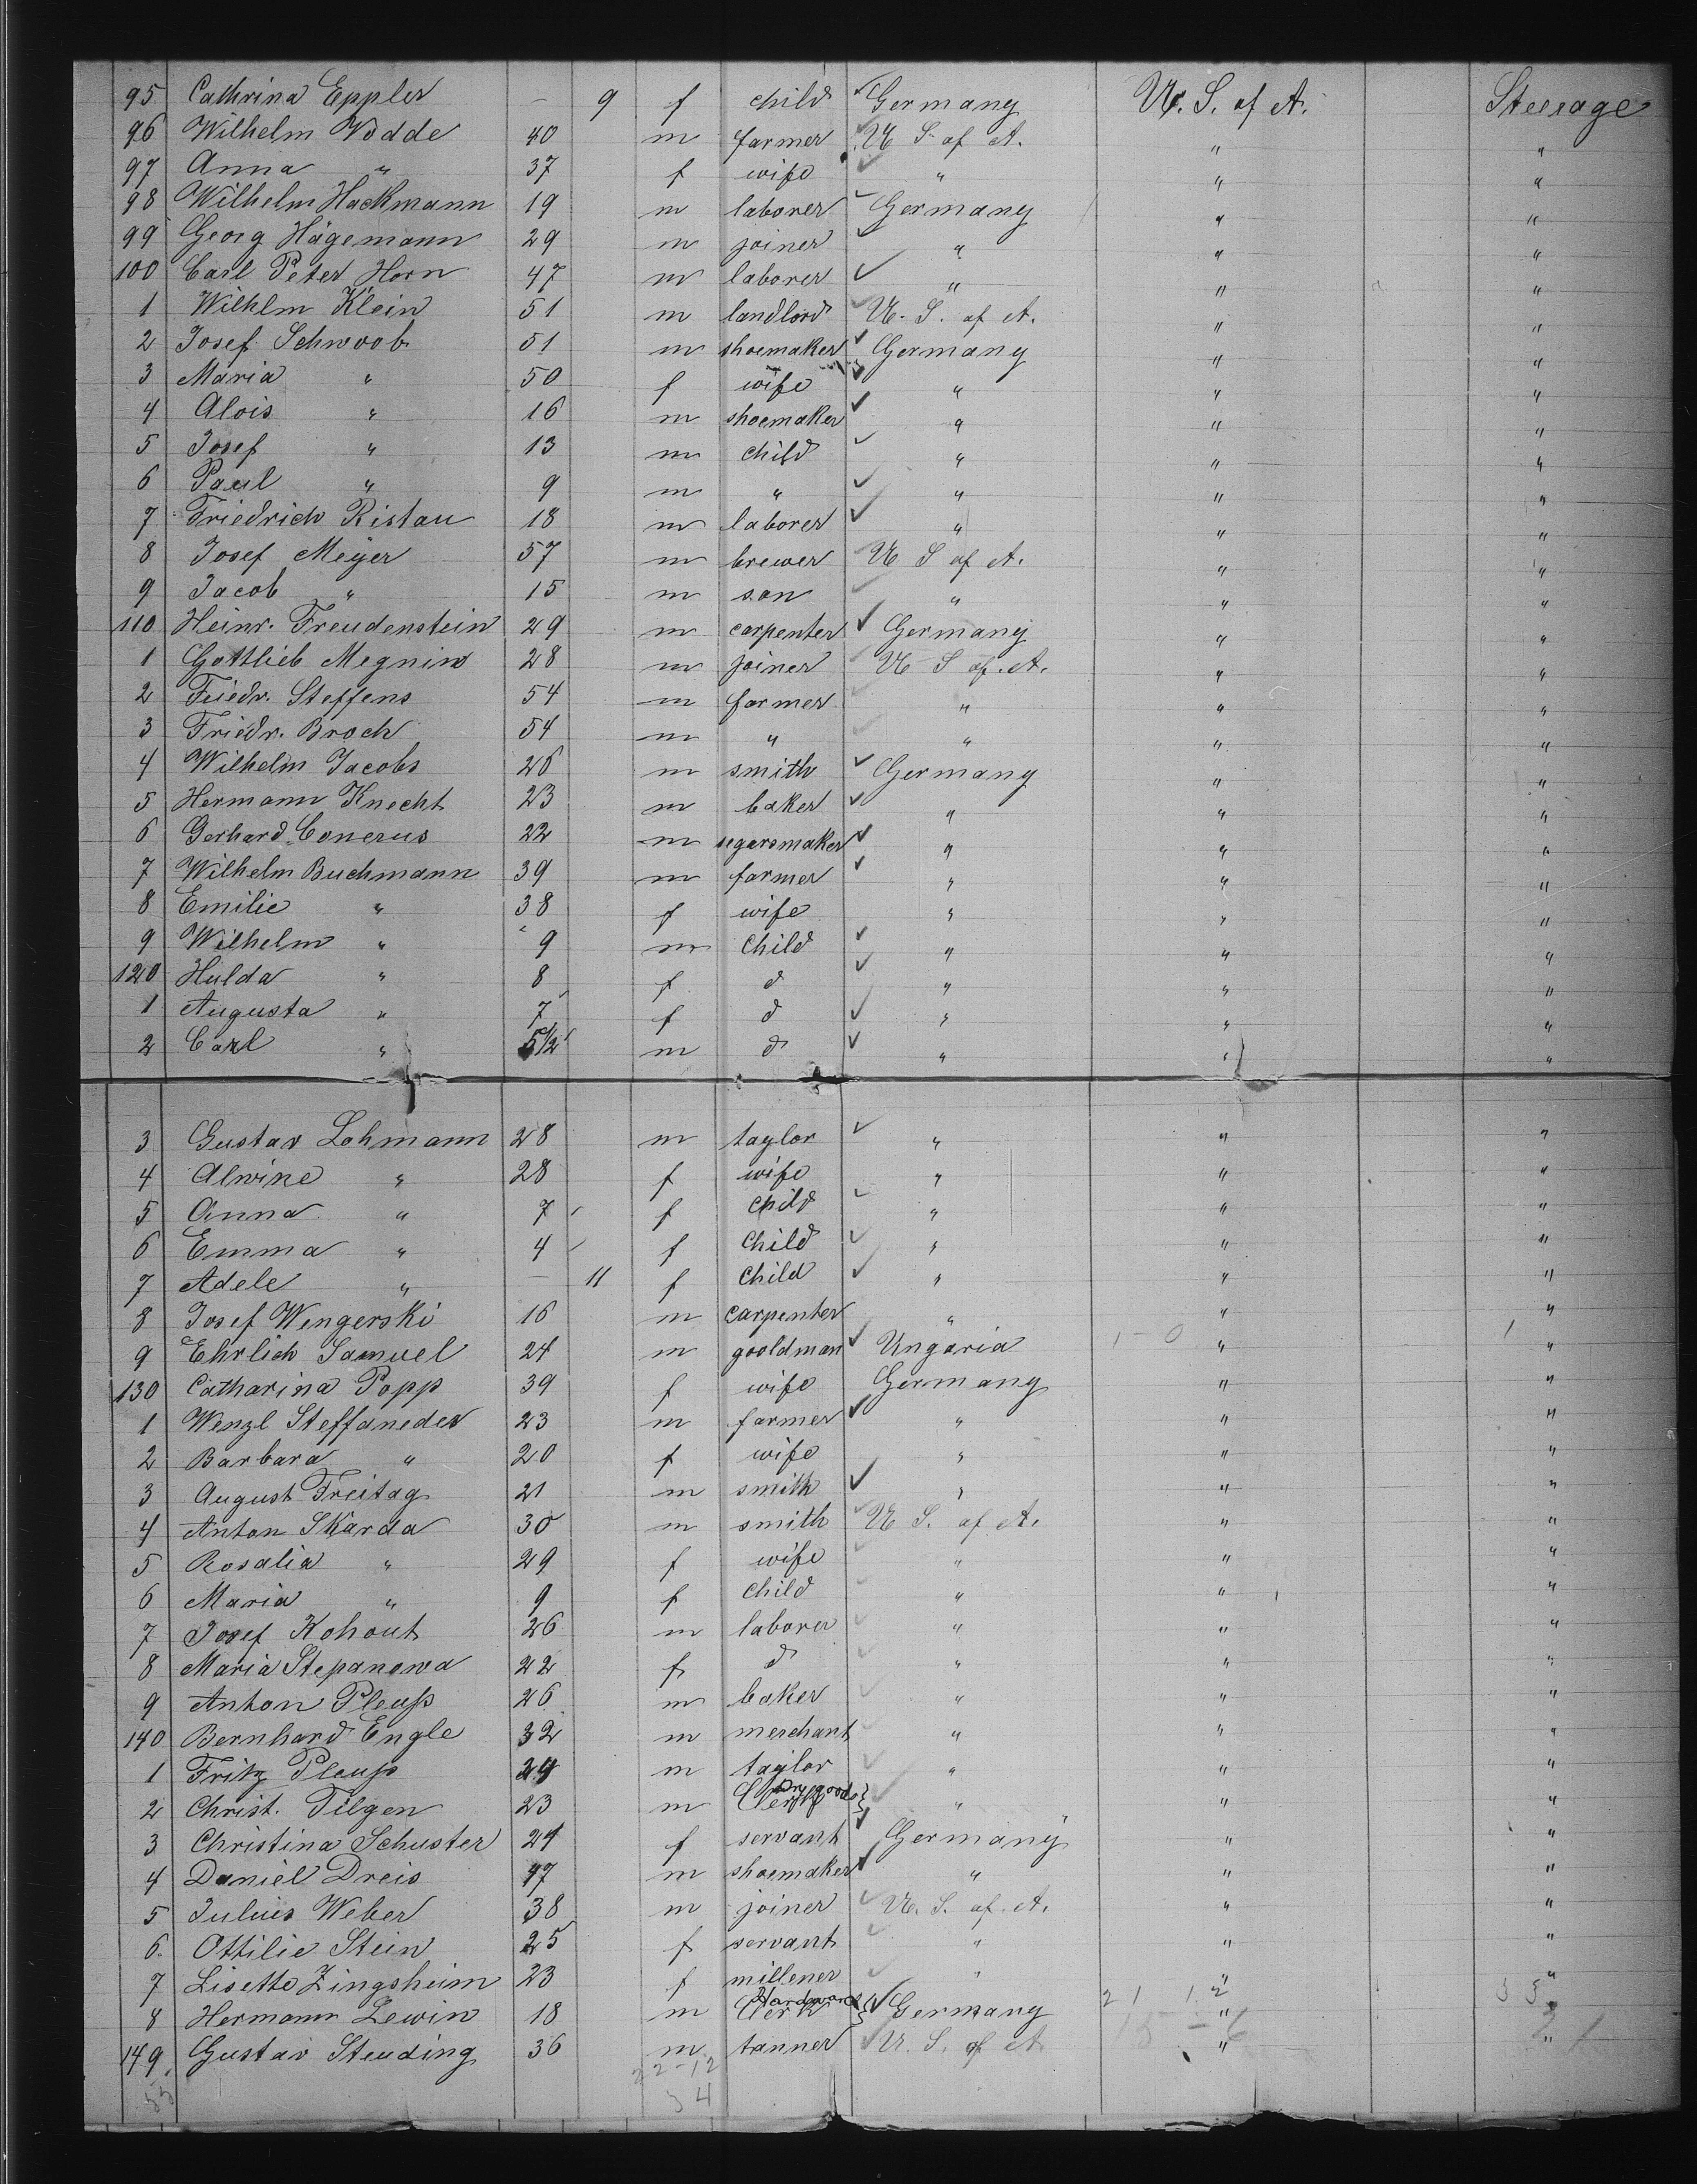 95 Cathrina Eppler — 9 f child Germany U. S. of A. Steerage
96 Wilhelm Vodde 40 m farmer U S of A. " "
97 Anna " 37 f wife " " "
98 Wilhelm Hackmann 19 m laborer Germany " "
99 Georg Hägemann 29 m joiner " " "
100 Carl Peter Horn 47 m laborer " " "
1 Wilhlm Klein 51 m landlord U. S. of A. " "
2 Josef Schwoob 51 m shoemaker Germany " "
3 Maria " 50 f wife " " "
4 Alois " 16 m shoemaker " " "
5 Josef " 13 m child " " "
6 Paul " 9 m " " " "
7 Friedrich Ristau 18 m laborer " " "
8 Josef Meyer 57 m brewer U S of A. " "
9 Jacob " 15 m son " " "
110 Heinr. Freudenstein 29 m carpenter Germany " "
1 Gottlieb Megnin 28 m joiner U S of A. " "
2 Friedr. Steffens 54 m farmer " " "
3 Friedr. Broch 54 m " " " "
4 Wilhelm Jacobs 26 m smith Germany " "
5 Hermann Knecht 23 m baker " " "
6 Gerhard Conerus 22 m segarsmaker " " "
7 Wilhelm Buchmann 39 m farmer " " "
8 Emilie " 38 f wife " " "
9 Wilhelm " 9 m child " " "
120 Hulda " 8 f d " " "
1 Augusta " 7 f d " " "
2 Carl " 5 1/2 m d " " "
3 Gustav Lohmann 28 m taylor " " "
4 Alwine " 28 f wife " " "
5 Anna " 7 f child " " "
6 Emma " 4 f child " " "
7 Adele " — 11 f child " " "
8 Josef Wengerski 16 m carpenter " " "
9 Ehrlich Samuel 24 m gooldman Ungaria " "
130 Catharina Popp 39 f wife Germany " "
1 Wenzl Steffaneder 23 m farmer " " "
2 Barbara " 20 f wife " " "
3 August Freitag 21 m smith " " "
4 Anton Skarda 30 m smith U S. of A. " "
5 Rosalia " 29 f wife " " "
6 Maria " 9 f child " " "
7 Josef Kohout 26 m laborer " " "
8 Maria Stepanowa 22 f d " " "
9 Anton Pleuß 26 m baker " " "
140 Bernhard Engle 32 m merchant " " "
1 Fritz Pleuß 24 m taylor " " "
2 Christ. Tilgen 23 m Dry goods Clerk " " "
3 Christina Schuster 24 f servant Germany " "
4 Daniel Dreis 47 m shoemaker " " "
5 Julius Weber 38 m joiner U. S. of A. " "
6. Ottilie Stein 25 f servant " " "
7 Lisette Zingsheim 23 f millener " " "
8 Hermann Lewin 18 m Hardware Clerk Germany " "
149. Gustav Steuding 36 m tanner U. S. of A " "
22-12
34